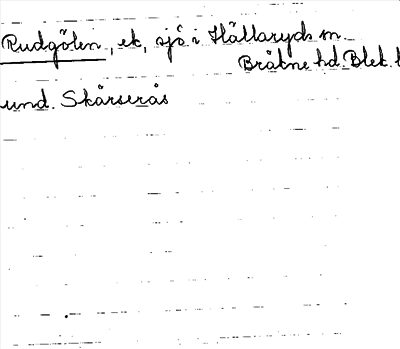 Rudgölen, ek, sjö i Hällaryds sn.
Bräkne hd. Blek. l
und. Skårserås